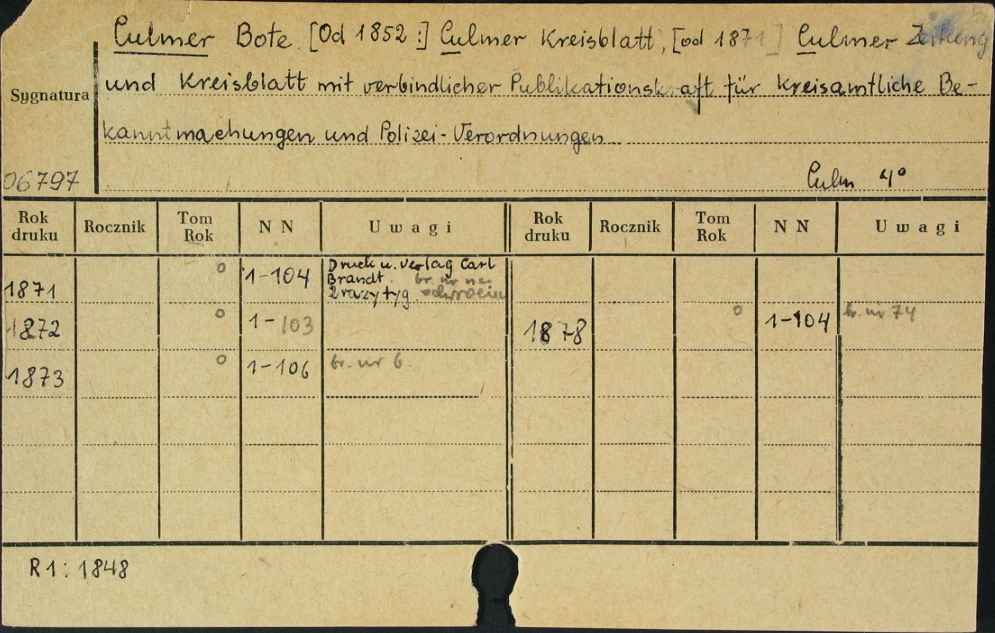 Culmer Bote. [Od 1852:] Culmer Kreisblatt, [od 1871] Culmer Zeitung
und Kreisblatt mit verbindlicher Publikationskraft für kreisamtliche Be-
Sygnatura
kanntmachungen und Polizei-Verordnungen
06797
Culm 4°
Rok druku Rocznik Tom Rok NN Uwagi Rok druku Rocznik Tom Rok NN Uwagi
1871 o 1-104 Druck u. Verlag Carl
Brandt br. nr
2 razy tyg.
1872 o 1-103 1878 o 1-104 br. nr 74
1873 o 1-106 br. nr 6
R1: 1848